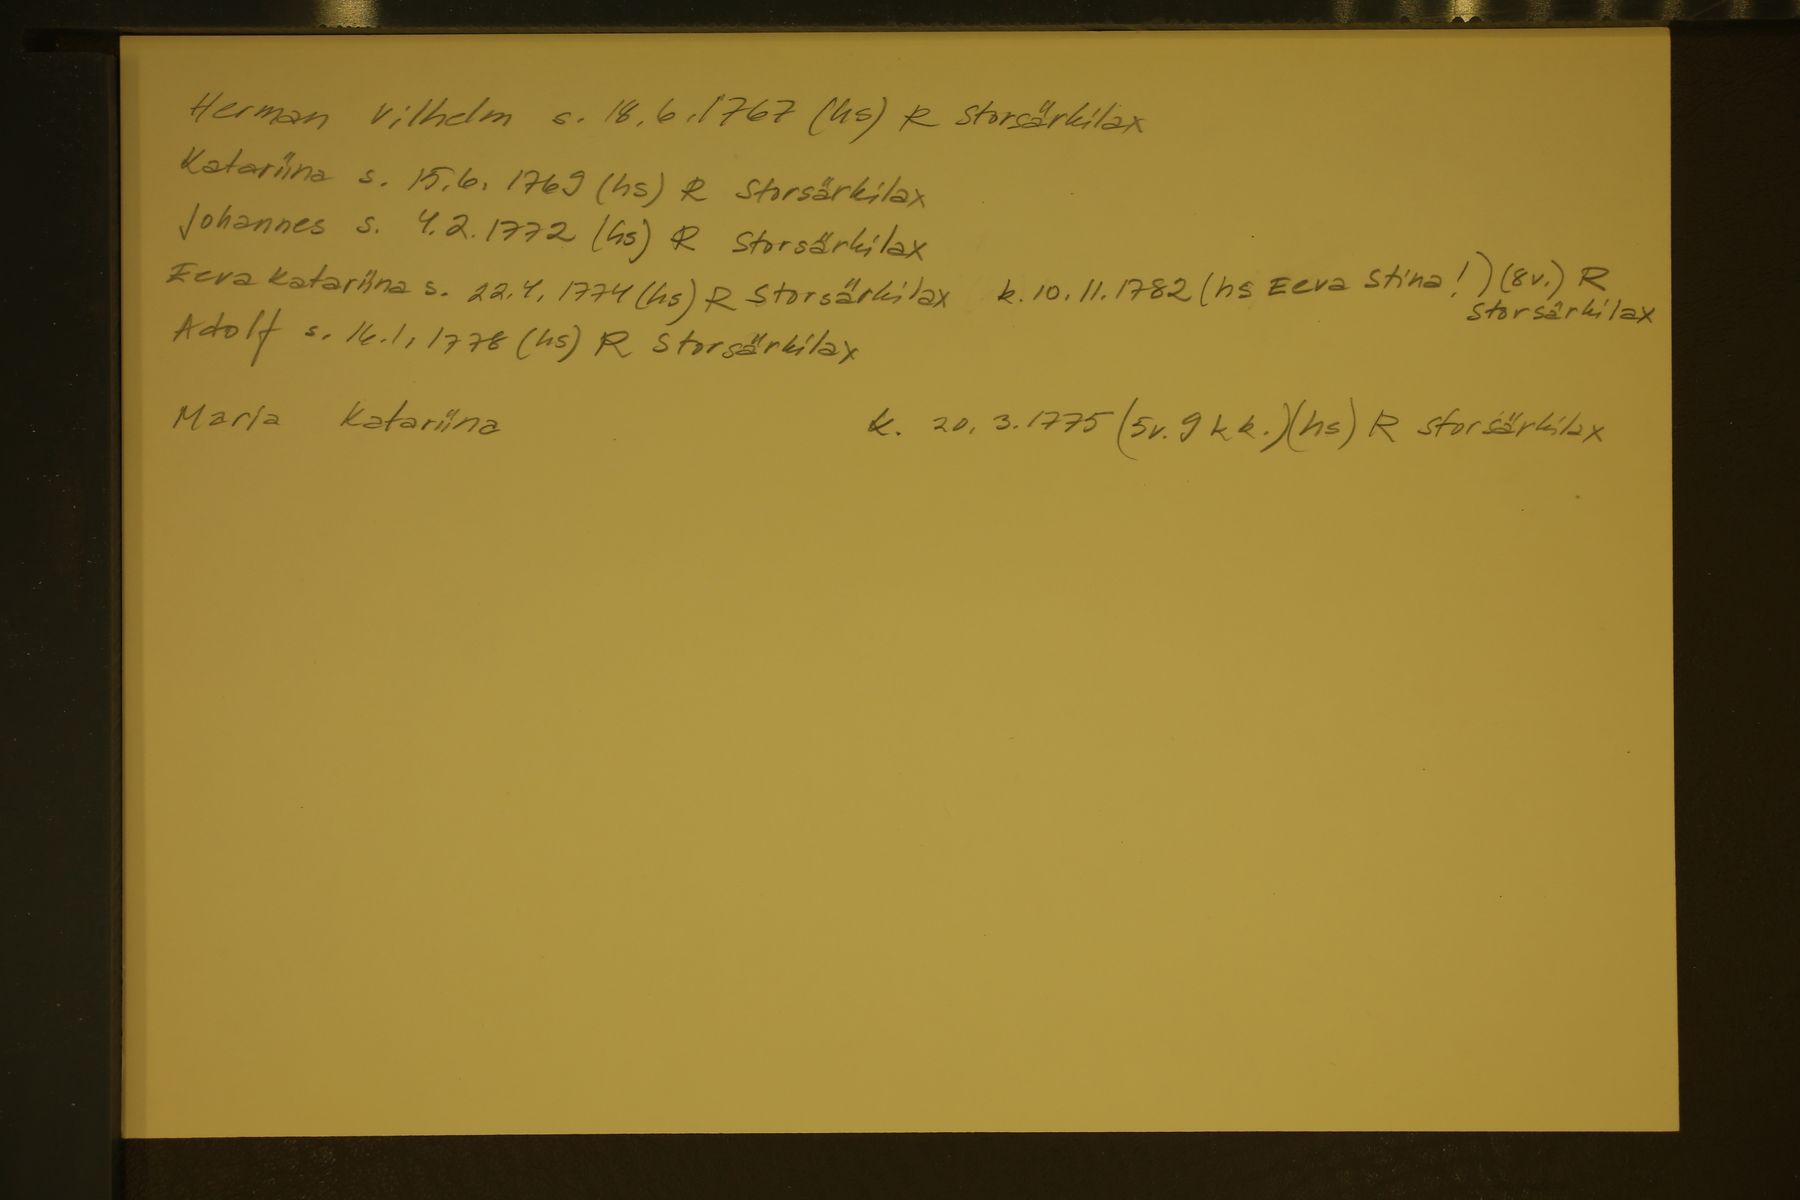 Herman Vilhelm s. 18.6.1767 (hs) R Storsärkilax
Katariina s. 15.6. 1769 (hs) R Storsärkilax
Johannes s. 4.2.1772 (hs) R Storsärkilax
Eeva Katariina s. 22.4. 1774 (hs) R Storsärkilax k. 10.11.1782 (hs Eeva Stina!) (8v.) R
Storsärkilax
Adolf s. 16.1. 1778 (hs) R Storsärkilax
Maria Katariina k. 20. 3. 1775 (5v. 9 kk.) (hs) R Storsärkilax